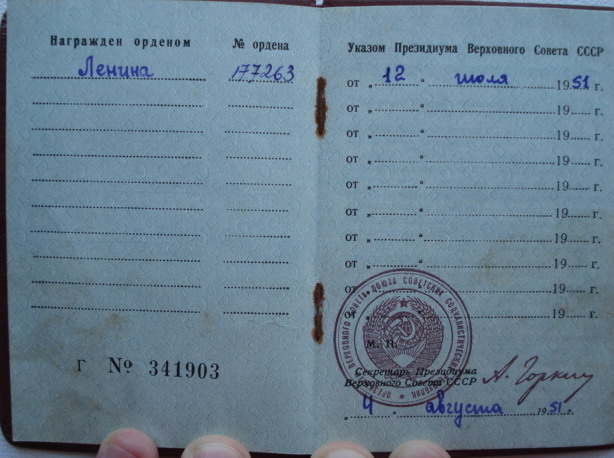 Награжден орденом № ордена
Ленина 177263
Г № 341903
Указом Президиума Верховного Совета СССР
от „ 12 “ июля 1951 г.
от „ “ 19 г.
от „ “ 19 г.
от „ “ 19 г.
от „ “ 19 г.
от „ “ 19 г.
от „ “ 19 г.
от „ “ 19 г.
от „ “ 19 г.
от „ “ 19 г.
М. П.
Секретарь Президиума
Верховного Совета СССР А. Горкин
„ 4 “ августа 1951 г.